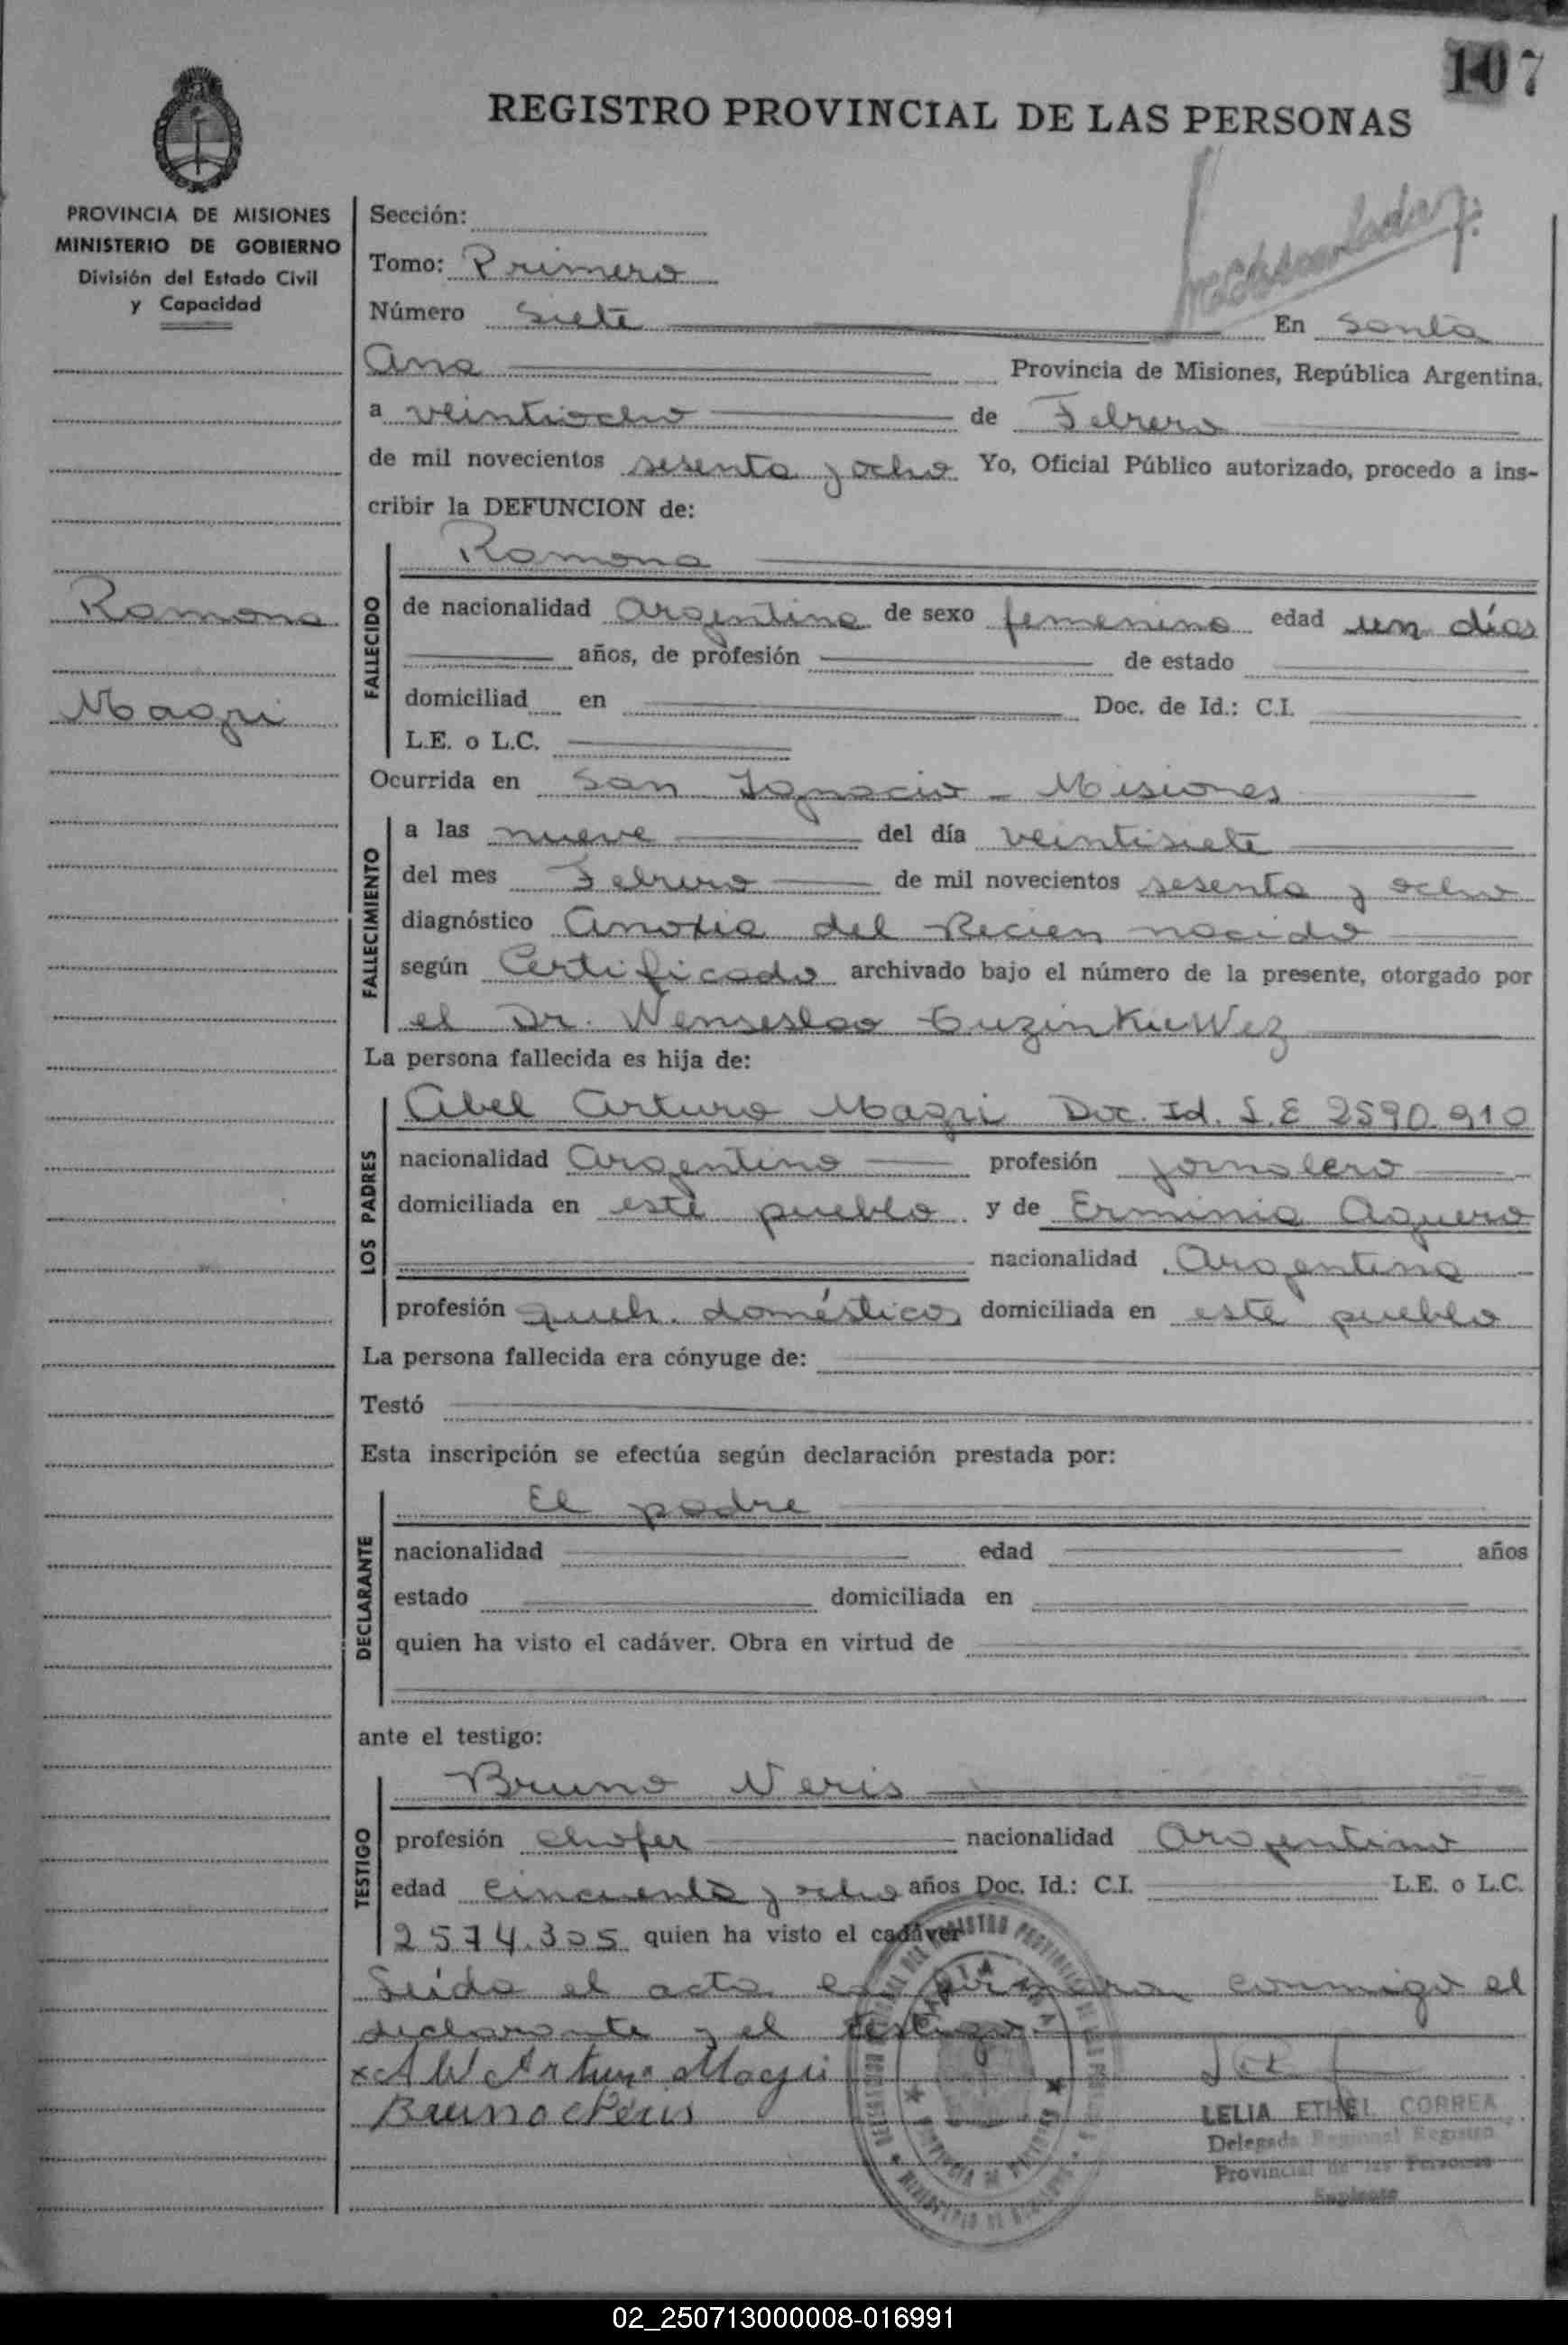 107
REGISTRO PROVINCIAL DE LAS PERSONAS
PROVINCIA DE MISIONES
MINISTERIO DE GOBIERNO
División del Estado Civil
y Capacidad
Ramona
Magri
Sección:
Tomo: Primero
Número siete En Santa
Ana Provincia de Misiones, República Argentina,
a veintiocho de Febrero
de mil novecientos sesenta y ocho Yo, Oficial Público autorizado, procedo a ins-
cribir la DEFUNCION de:
Ramona
FALLECIDO
de nacionalidad Argentina de sexo femenino edad un días
años, de profesión de estado
domiciliad en Doc. de Id.: C.I.
L.E. o L.C.
Ocurrida en San Ignacio - Misiones
FALLECIMIENTO
a las nueve del día veintisiete
del mes Febrero de mil novecientos sesenta y ocho
diagnóstico Anoxia del Recien nacido
según Certificado archivado bajo el número de la presente, otorgado por
el Dr. Wenseslao
La persona fallecida es hija de:
LOS PADRES
Abel Arturo Magri Doc. Id. L.E 2590.910
nacionalidad Argentino profesión jornalero
domiciliada en este pueblo y de Erminia Aguero
nacionalidad Argentina
profesión queh. domésticos domiciliada en este pueblo
La persona fallecida era cónyuge de:
Testó
Esta inscripción se efectúa según declaración prestada por:
El padre
DECLARANTE
nacionalidad edad años
estado domiciliada en
quien ha visto el cadáver. Obra en virtud de
ante el testigo:
Bruno Neris
TESTIGO
profesión chofer nacionalidad Argentino
edad cincuenta y ocho años Doc. Id.: C.I. L.E. o L.C.
2574.305 quien ha visto el cadáver
Leida el acta, la firman conmigo el
declarante y el testigo
Arturo Magri
Bruno Neris
LELIA ETHEL CORREA
Delegada Regional Registro
Provincial de las Personas
Suplente
02_250713000008-016991